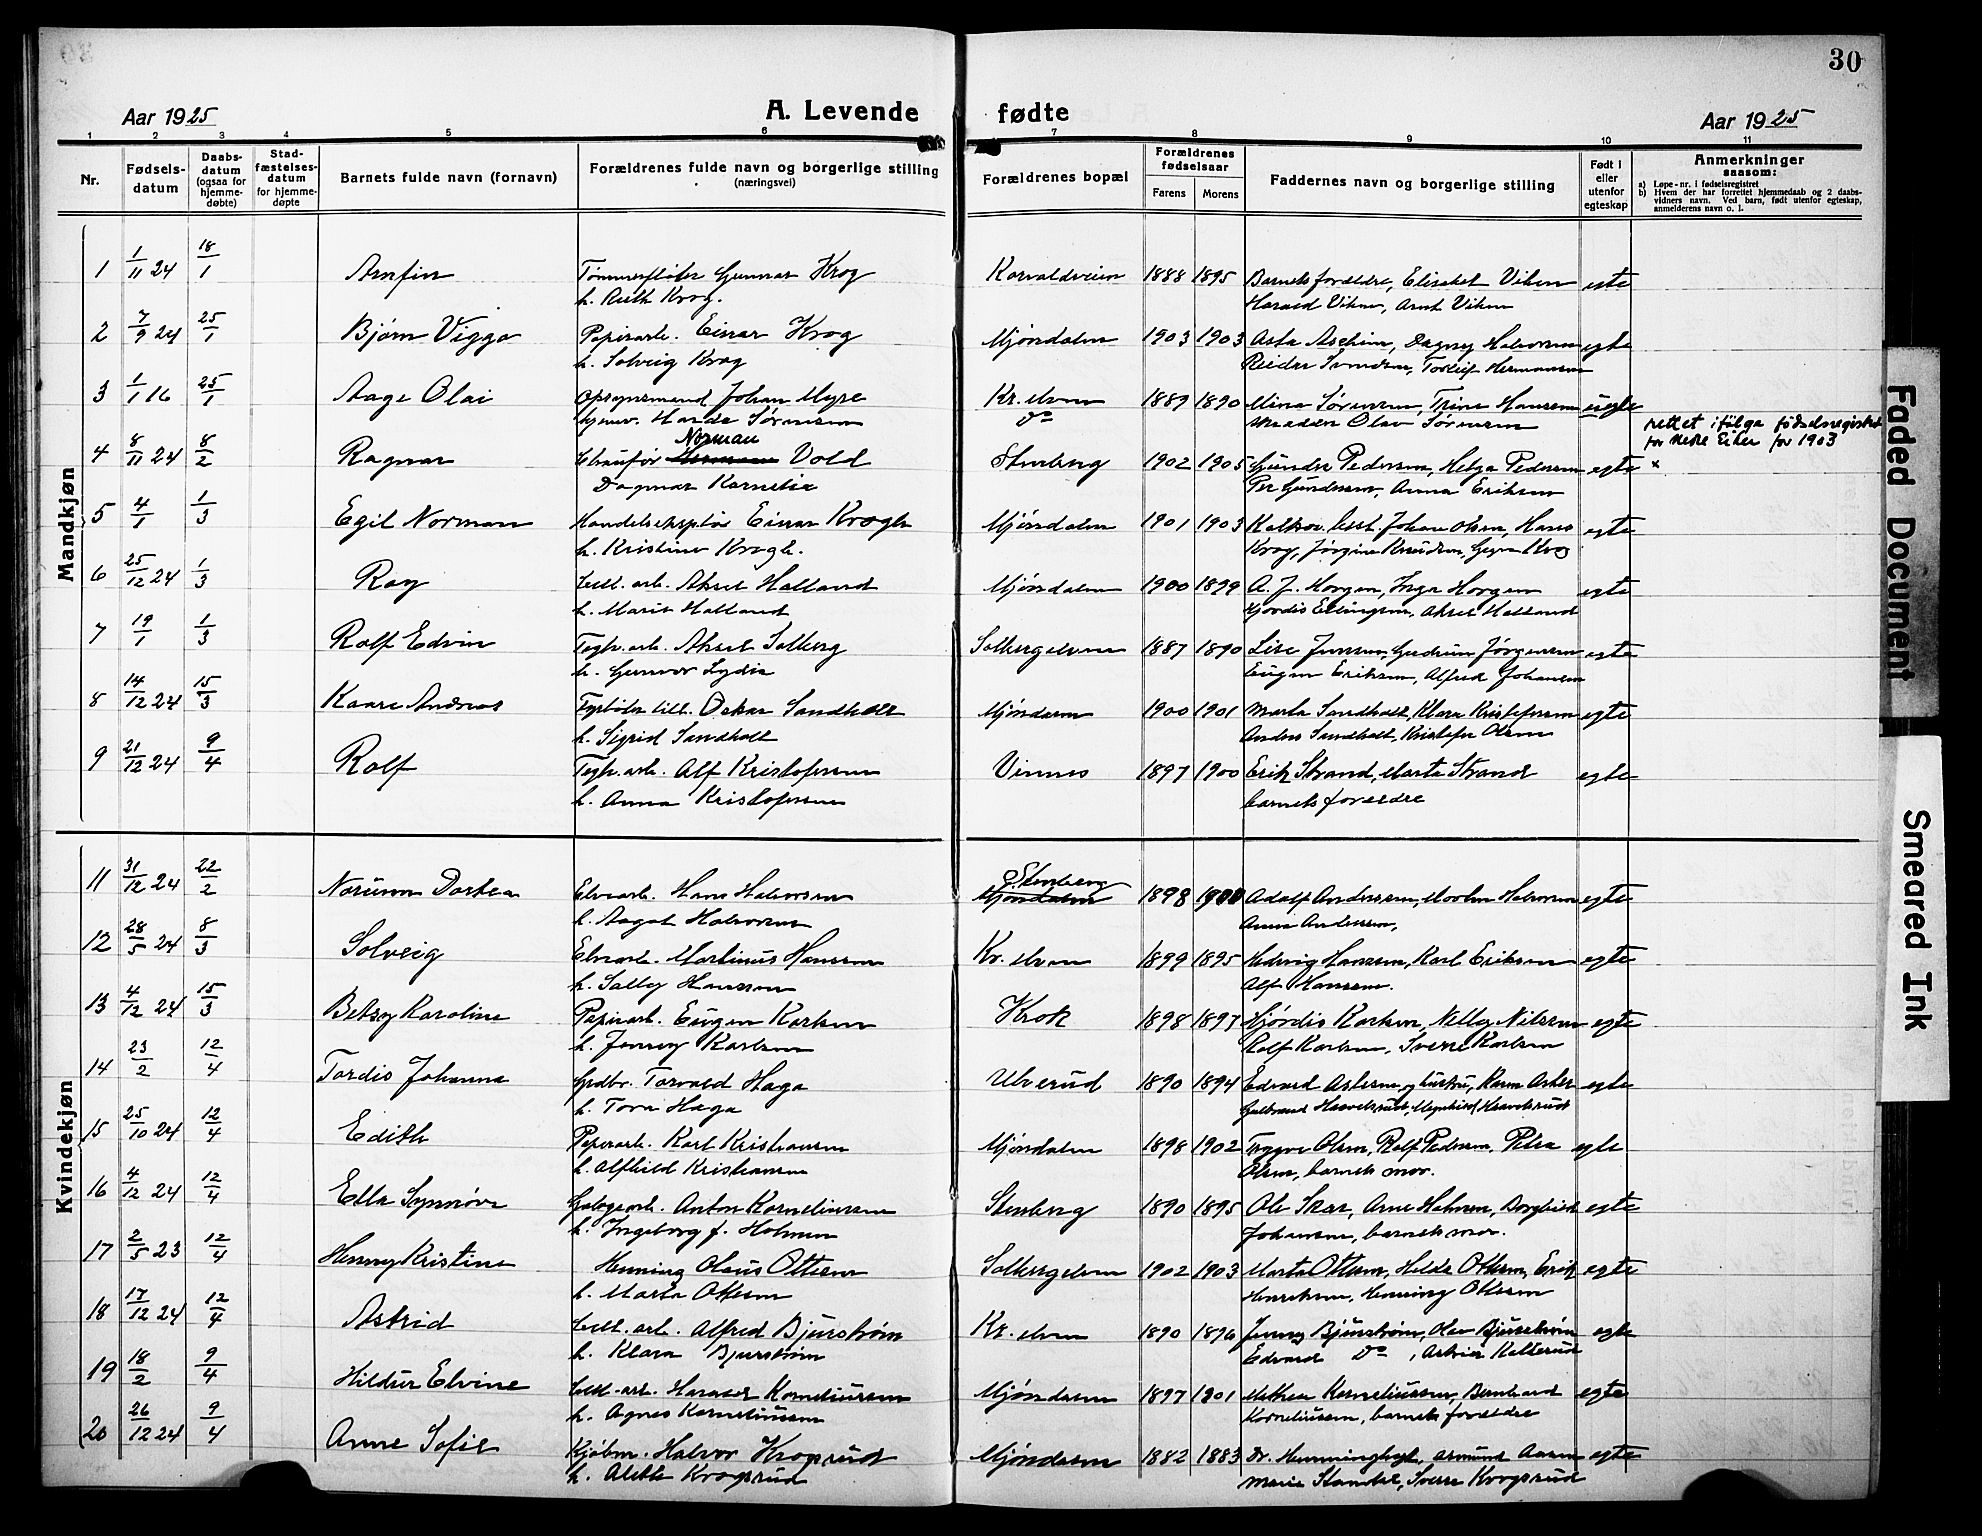 30
Aar 1925
A. Levende fødte
Aar 1925
1 2 3 4 5 6 7 8 9 10 11
Nr.
Fødsels-
datum
Daabs-
datum
(ogsaa for
hjemme-
døbte)
Stad-
fæstelses-
datum
for hjemme-
døpte
Barnets fulde navn (fornavn)
Forældrenes fulde navn og borgerlige stilling
(næringsvei)
Forældrenes bopæl
Forældrenes
fødselsaar
Farens Morens
Faddernes navn og borgerlige stilling
Født i
eller
utenfor
egteskap
Anmerkninger
saasom:
a) Løpe-nr. i fødselsregistret
b) Hvem der har forrettet hjemmedaab og 2 daabs-
vidners navn. Ved barn, født utenfor egteskap,
anmelderens navn o. l.
Mandkjøn
1 1/11 24 18/1 Arnfin Tømmerfløter Gunnar Krog 1888 1895 Barnets forældre, Elisabet Viken egte
h. Ruth Krog. Harald Viken, Arnt Viken
2 7/9 24 25/1 Bjørn Viggo Papirarb. Einar Krog Mjøndalen 1903 1903 Asta Ascheim, Dagny Halvorsen egte
h. Solveig Krog Reidar Svendsen, Torleif Hermansen
3 1/1 16 25/1 Aage Olai Opsynsmand Johan Myre Kr. elven 1889 1890 Mina Sørensen, Trine Hansen uegte
Sørensen Do Olav Sørensen
rettet ifølge fødselsregistret
for Nedre Eiker for 1903
4 8/11 24 8/2 Ragnar Chaufør Hermann Norman Vold Stenberg 1902 1905 Gunder Pedersen, Helga Pedersen egte x
Dagmar Kornelia Per Gundersen, Anna Eriksen
5 4/1 1/3 Egil Norman Einar Krogh Mjøndalen 1901 1903 Johan Olsen, Hans egte
h. Kristine Krogh. Krog, Jørgine Knudsen, Krog
6 25/12 24 1/3 Roy Cell. arb. Aksel Halland Mjøndalen 1900 1899 A. J. Horgen, Inga Horgen egte
h. Marie Halland Hjørdis Ellingsen, Aksel Halland
7 19/1 1/3 Rolf Edvin Teglv. arb. Aksel Solberg Solbergelven 1887 1890 Lise Jensen, Gudrun Jørgensen egte
h. Gunvor Lydia Eugen Eriksen, Alfred Johansen
8 14/12 24 15/3 Kaare Andreas Fyrbøter cell. Oskar Sandholt Mjøndalen 1900 1901 Marta Sandholt, Klara Kristofersen egte
h. Sigrid Sandholt Anders Sandholt, Kristofer Olsen
9 21/12 24 9/4 Rolf Teglv. arb. Alf Kristofersen Vinnes 1897 1900 Erik Strand, Marta Strand egte
h. Anna Kristofersen barnets forældre
Kvindekjøn
11 31/12 24 22/2 Norunn Dortea Elvearb. Hans Halvorsen Mjøndalen Stenberg 1898 1900 Adolf Anderssen, Halvorsen egte
h. Aagot Halvorsen Anna Anderssen,
12 28/5 24 8/3 Solveig Elvearb. Martinus Hanssen Kr. elven 1899 1895 Hedvig Hanssen, Karl Eriksen egte
h. Sally Hanssen Alf Hanssen.
13 4/12 24 15/3 Betsy Karoline Papirarb. Eugen Karlsen Krok 1898 1897 Hjørdis Karlsen, Nelly Nilssen egte
h. Jenny Karlsen Rolf Karlsen, Sverre Karlsen
14 23/2 12/4 Tordis Johanna Grdbr. Torvald Haga Ulverud 1890 1894 Edvard Askersen og hustru, Karen Asker egte
h. Tora Haga Gulbrand Haavelsrud, Haavelsrud
15 25/10 24 12/4 Edith Papirarb. Karl Kristiansen Mjøndalen 1898 1902 Trygve Olsen, Rolf Pedersen, Petra egte
h. Alfhild Kristiansen Olsen, barnets mor.
16 4/12 24 12/4 Ella Synnøve Anton Korneliussen Stenberg 1890 1895 Ole Skar, Arne Holmen, Borghild egte
h. Ingeborg f. Holmen Johansen, barnets mor.
17 2/5 23 12/4 Henny Kristine Henning Olaus Ottesen Solbergelven 1902 1903 Marta Ottesen, Hilda Ottesen, Erik egte
h. Marta Ottesen Henriksen, Henning Ottesen
18 17/12 24 12/4 Astrid Cell. arb. Alfred Bjurstrøm Kr. elven 1890 1896 Jenny Bjurstrøm, Bjurstrøm egte
h. Klara Bjurstrøm Edvard Do, Kallerud
19 18/2 9/4 Hildur Elvine Cell. arb. Korneliussen Mjøndalen 1897 1901 Mathea Korneliussen, Bernhard egte
h. Agnes Korneliussen Korneliussen, barnets forældre
20 26/12 24 9/4 Anne Sofie Kjøbm. Halvor Krogsrud Mjøndalen 1882 1883 Dr. Asmund Aasen egte
h. Aleth Krogsrud Marie Sverre Krogsrud
Faded Document
Smeared Ink